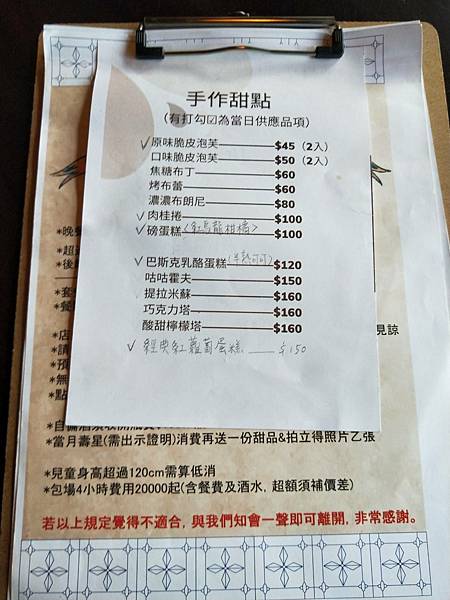 手作甜點
(有打勾☑為當日供應品項)
✓原味脆皮泡芙 $45 (2入)
口味脆皮泡芙 $50 (2入)
焦糖布丁 $60
烤布蕾 $60
濃濃布朗尼 $80
✓肉桂捲 $100
✓磅蛋糕(紅烏龍柑橘) $100
✓巴斯克乳酪蛋糕(半熟可可) $120
咕咕霍夫 $150
提拉米蘇 $160
巧克力塔 $160
酸甜檸檬塔 $160
✓經典紅蘿蔔蛋糕 $150
*晚
*超
*後
*套
*餐
*店
見諒
*請
*預
*無
*點
*當月壽星(需出示證明)消費再送一份甜品&拍立得照片乙張
*兒童身高超過120cm需算低消
*包場4小時費用20000起(含餐費及酒水, 超額須補價差)
若以上規定覺得不適合, 與我們知會一聲即可離開, 非常感謝。